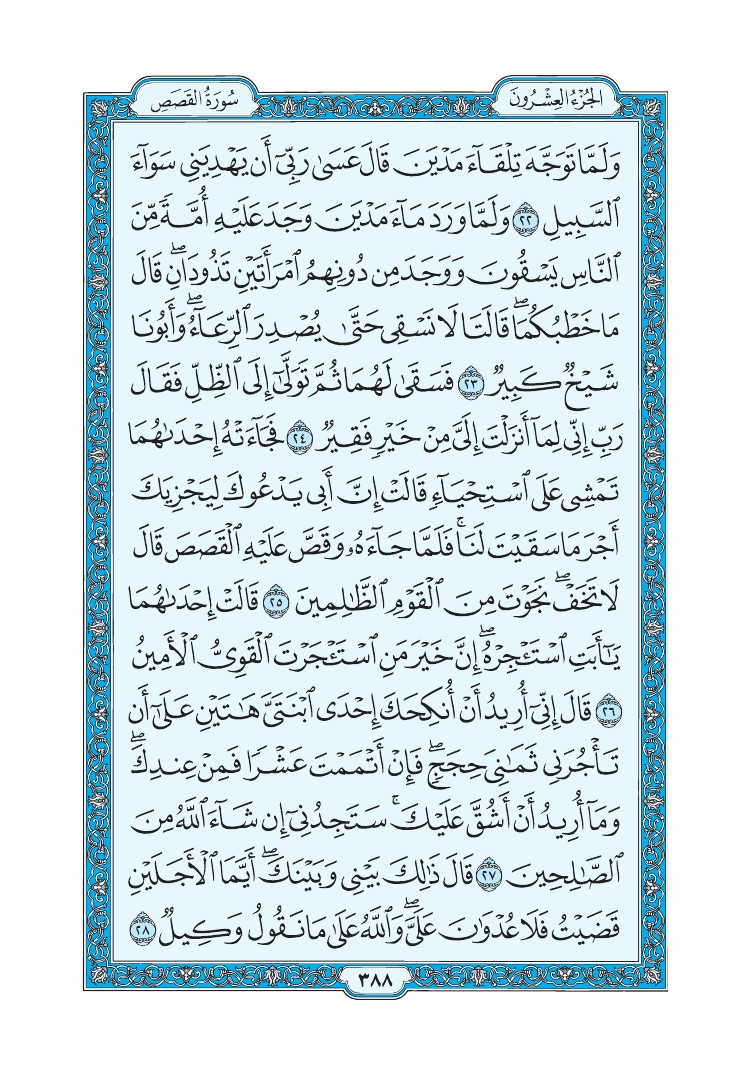 الجُزْءُ العِشْرُونَ
سُورَةُ القَصَصِ
وَلَمَّا تَوَجَّهَ تِلْقَآءَ مَدْيَنَ قَالَ عَسَىٰ رَبِّىٓ أَن يَهْدِيَنِى سَوَآءَ
ٱلسَّبِيلِ ٢٢ وَلَمَّا وَرَدَ مَآءَ مَدْيَنَ وَجَدَ عَلَيْهِ أُمَّةً مِّنَ
ٱلنَّاسِ يَسْقُونَ وَوَجَدَ مِن دُونِهِمُ ٱمْرَأَتَيْنِ تَذُودَانِۖ قَالَ
مَا خَطْبُكُمَاۖ قَالَتَا لَا نَسْقِى حَتَّىٰ يُصْدِرَ ٱلرِّعَآءُۖ وَأَبُونَا
شَيْخٌ كَبِيرٌ ٢٣ فَسَقَىٰ لَهُمَا ثُمَّ تَوَلَّىٰٓ إِلَى ٱلظِّلِّ فَقَالَ
رَبِّ إِنِّى لِمَآ أَنزَلْتَ إِلَىَّ مِنْ خَيْرٍ فَقِيرٌ ٢٤ فَجَآءَتْهُ إِحْدَىٰهُمَا
تَمْشِى عَلَى ٱسْتِحْيَآءٍ قَالَتْ إِنَّ أَبِى يَدْعُوكَ لِيَجْزِيَكَ
أَجْرَ مَا سَقَيْتَ لَنَاۚ فَلَمَّا جَآءَهُۥ وَقَصَّ عَلَيْهِ ٱلْقَصَصَ قَالَ
لَا تَخَفْۖ نَجَوْتَ مِنَ ٱلْقَوْمِ ٱلظَّٰلِمِينَ ٢٥ قَالَتْ إِحْدَىٰهُمَا
يَٰٓأَبَتِ ٱسْتَـْٔجِرْهُۖ إِنَّ خَيْرَ مَنِ ٱسْتَـْٔجَرْتَ ٱلْقَوِىُّ ٱلْأَمِينُ
٢٦ قَالَ إِنِّىٓ أُرِيدُ أَنْ أُنكِحَكَ إِحْدَى ٱبْنَتَىَّ هَٰتَيْنِ عَلَىٰٓ أَن
تَأْجُرَنِى ثَمَٰنِىَ حِجَجٍۖ فَإِنْ أَتْمَمْتَ عَشْرًا فَمِنْ عِندِكَۖ
وَمَآ أُرِيدُ أَنْ أَشُقَّ عَلَيْكَۚ سَتَجِدُنِىٓ إِن شَآءَ ٱللَّهُ مِنَ
ٱلصَّٰلِحِينَ ٢٧ قَالَ ذَٰلِكَ بَيْنِى وَبَيْنَكَۖ أَيَّمَا ٱلْأَجَلَيْنِ
قَضَيْتُ فَلَا عُدْوَٰنَ عَلَىَّۖ وَٱللَّهُ عَلَىٰ مَا نَقُولُ وَكِيلٌ ٢٨
٣٨٨